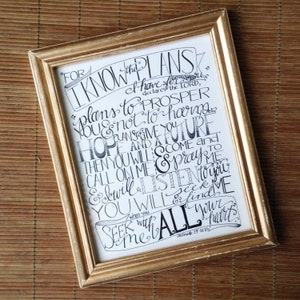 FOR
I KNOW the PLANS
I have for you
declares the LORD,
plans to PROSPER
you & not to harm
HOPE PLANS to GIVE YOU FUTURE
THEN YOU WILL COME and
CALL ON ME & pray to ME,
& I will LISTEN to you
YOU WILL seek & find ME
when you
SEEK me with ALL your heart.